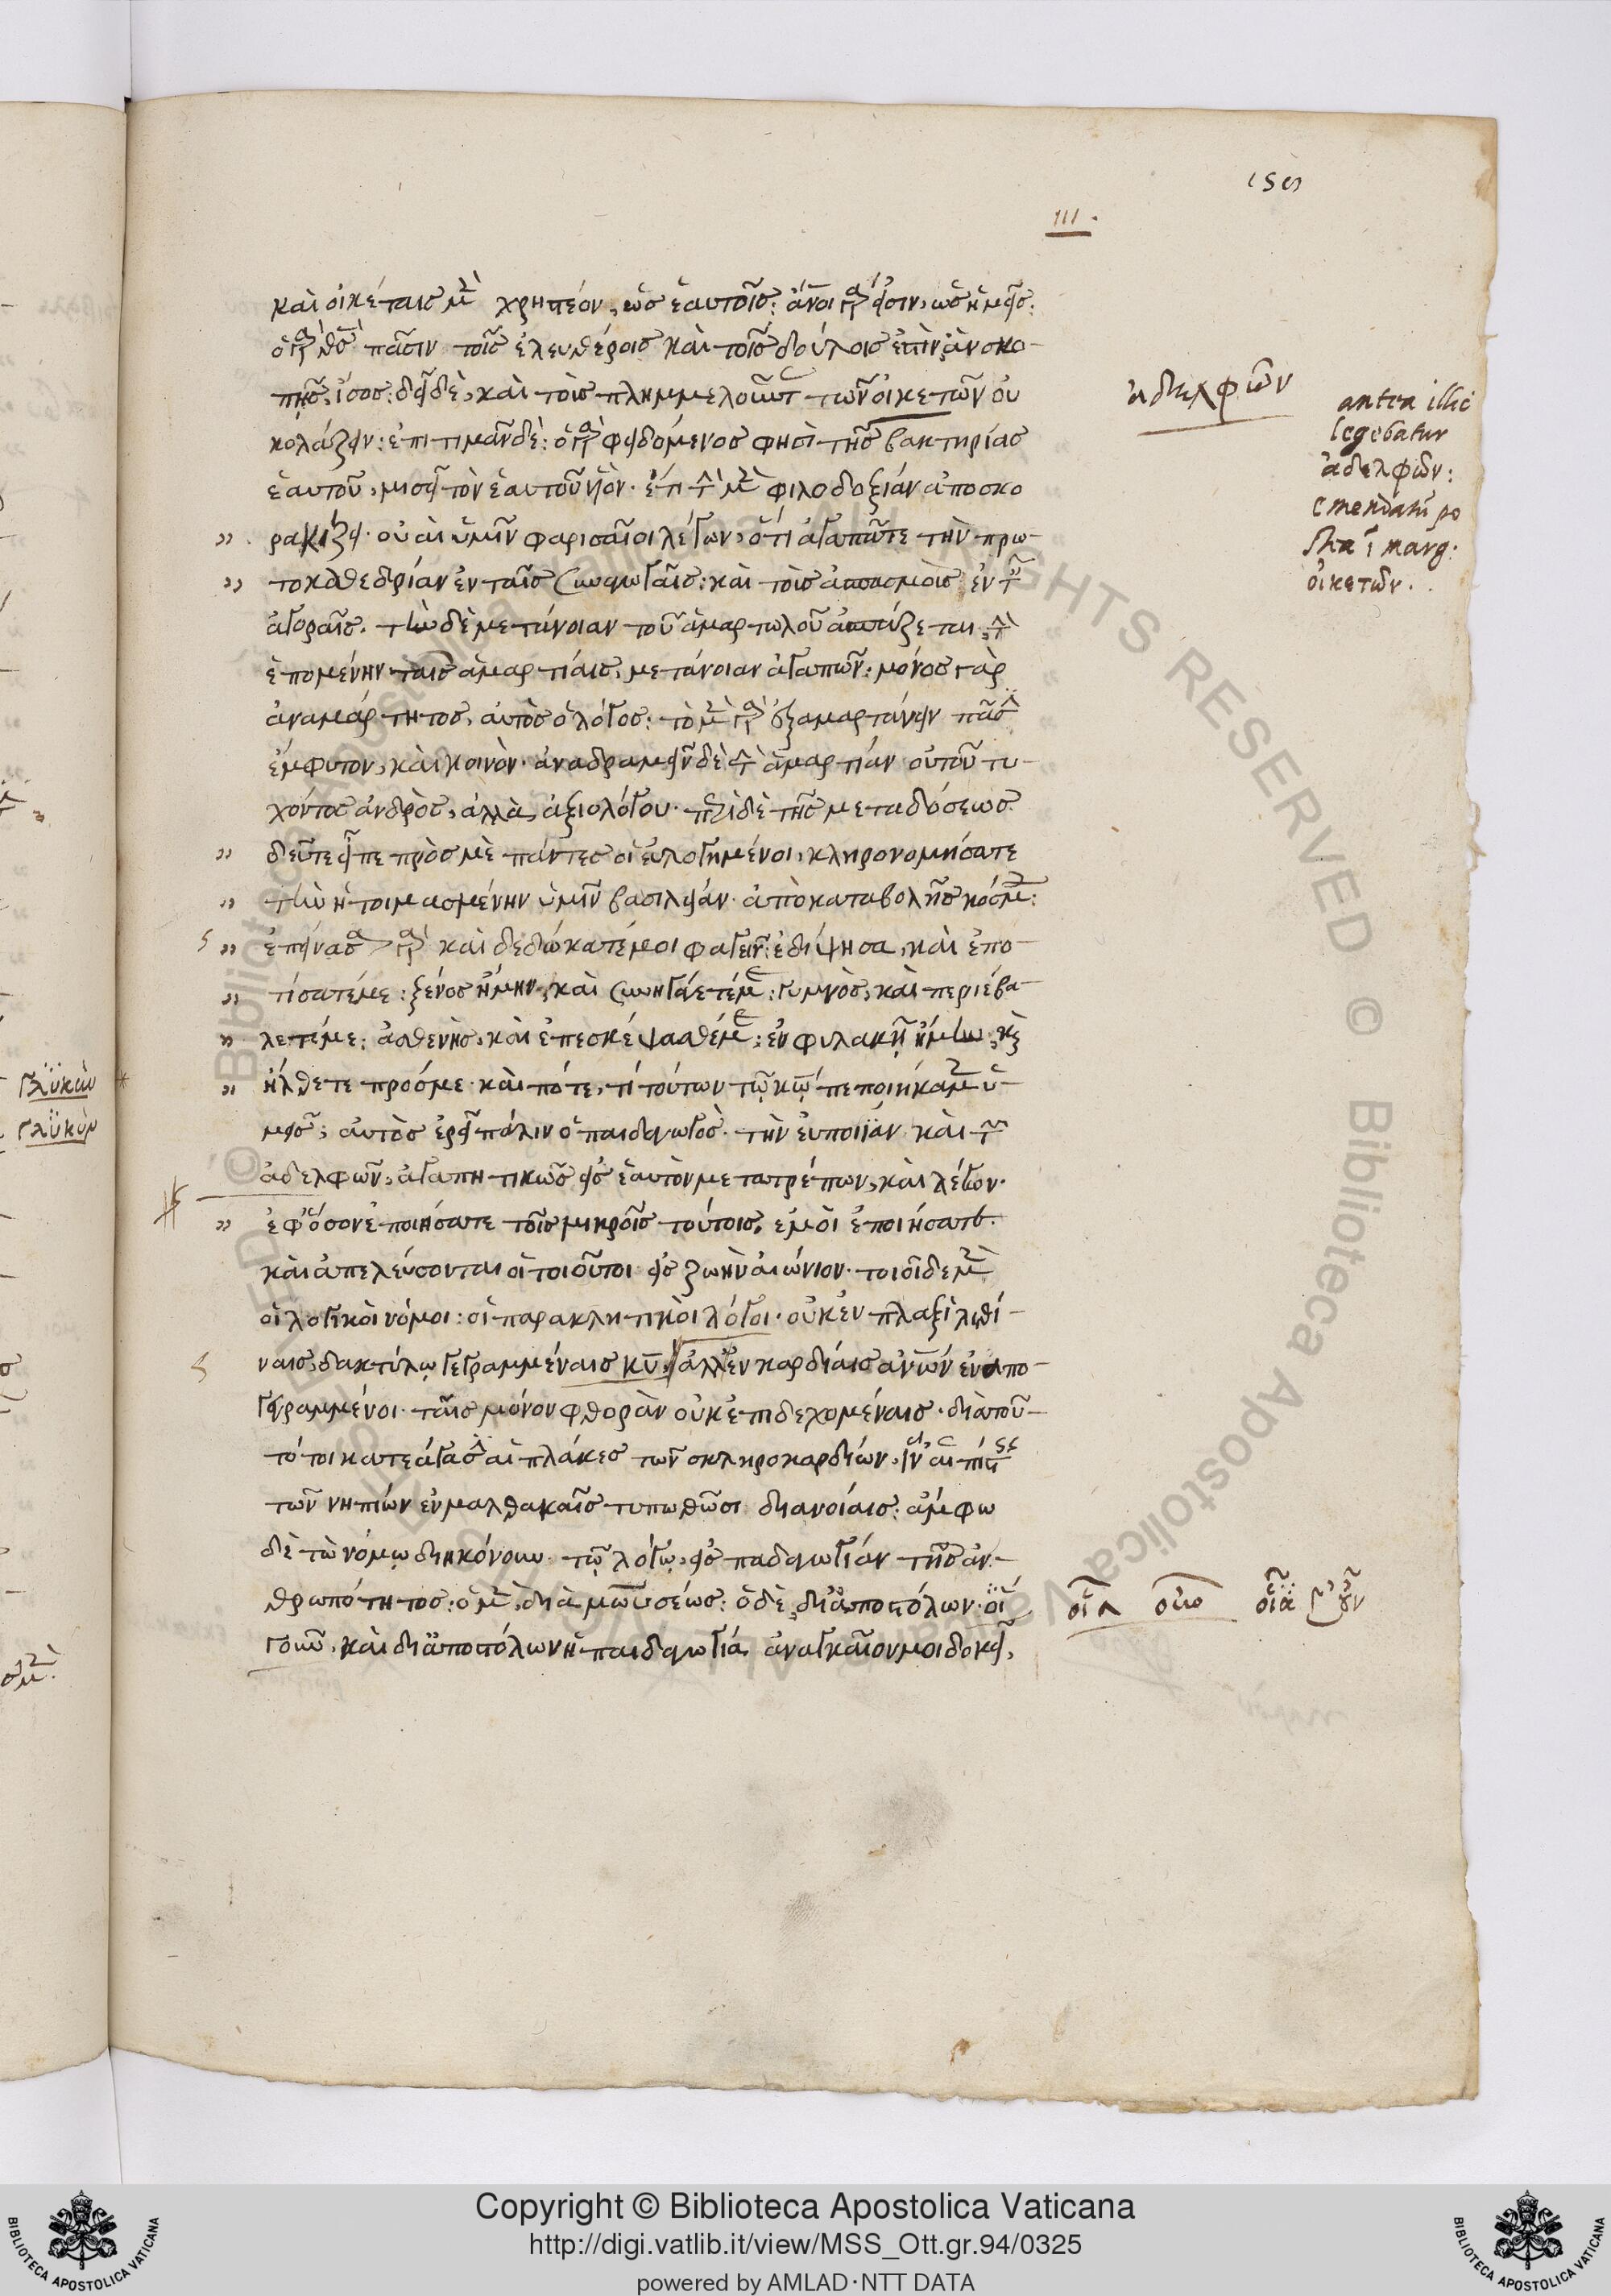 150
III.
καὶ οἰκέταις μὲν χρηστέον, ὡς ἑαυτοῖς: ἄνοι γάρ εἰσιν, ὡς ἡμεῖς:
ὁ γὰρ θς̅ πᾶσιν τοῖς ἐλευθέροις καὶ τοῖς δούλοις ἐστὶν, ἂν σκο-
πῇς, ἴσος: δεῖ δὲ, καὶ τοὺς πλημμελοῦντας τῶν οἰκετῶν οὐ
κολάζειν: ἐπιτιμᾶν δὲ: ὁ γὰρ φειδόμενος φησὶ τῆς βακτηρίας
ἑαυτοῦ, μισεῖ τὸν ἑαυτοῦ υἱόν. ἔτι τὴν μὲν φιλοδοξίαν ἀποσκο
ρακίζει. οὐαὶ ὑμῖν φαρισαῖοι λέγων, ὅτι ἀγαπᾶτε τὴν πρω-
τοκαθεδρίαν ἐν ταῖς συναγωγαῖς: καὶ τοὺς ἀσπασμοὺς ἐν ταῖς
ἀγοραῖς. τὴν δὲ μετάνοιαν τοῦ ἁμαρτωλοῦ ἀσπάζεται, τὴν
ἑπομένην ταῖς ἁμαρτίαις, μετάνοιαν ἀγαπῶν: μόνος γὰρ
ἀναμάρτητος, αὐτὸς ὁ λόγος: τὸ μὲν γὰρ ἐξαμαρτάνειν πᾶσιν
ἔμφυτον, καὶ κοινὸν. ἀναδραμεῖν δὲ τὴν ἁμαρτίαν οὐ τοῦ τυ-
χόντος ἀνδρὸς, ἀλλὰ ἀξιολόγου. περὶ δὲ τῆς μεταδόσεως
δεῦτε εἶπε πρὸς μὲ πάντες οἱ εὐλογημένοι, κληρονομήσατε
τὴν ἡτοιμασμένην ὑμῖν βασιλείαν ἀπὸ καταβολῆς κόσμου:
ἐπείνασα γὰρ καὶ δεδώκατέ μοι φαγεῖν: ἐδίψησα, καὶ ἐπο-
τίσατέ με: ξένος ἤμην, καὶ συνηγάγετέ με: γυμνὸς, καὶ περιεβά-
λετέ με: ἀσθενὴς, καὶ ἐπεσκέψασθέ με: ἐν φυλακῇ ἤμην, καὶ
ἤλθετε πρός με. καὶ πότε, τί τούτων τῷ κῷ πεποιήκαμεν ὑ-
μεῖς; αὐτὸς ἐρεῖ πάλιν ὁ παιδαγωγὸς. τὴν εὐποιΐαν καὶ τῶν
ἀδελφῶν, ἀγαπητικῶς εἰς ἑαυτὸν μετατρέπων, καὶ λέγων.
ἐφ' ὅσον ἐποιήσατε τοῖς μικροῖς τούτοις, ἐμοὶ ἐποιήσατε.
καὶ ἀπελεύσονται οἱ τοιοῦτοι εἰς ζωὴν αἰώνιον. τοιοίδε μὲν
οἱ λογικοὶ νόμοι: οἱ παρακλητικοὶ λόγοι. οὐκ ἐν πλαξὶ λιθί-
ναις, δακτύλῳ γεγραμμέναις κυ̅, ἀλλ' ἐν καρδίαις ἀνῶν ἐναπο-
γεγραμμένοι. ταῖς μόνον φθορὰν οὐκ ἐπιδεχομέναις. διὰ τοῦ-
τό τοι κατεάγασιν αἱ πλάκες τῶν σκληροκαρδίων, ἵν' αἱ πίστεις
τῶν νηπίων ἐν μαλθακαῖς τυπωθῶσι διανοίαις: ἄμφω
δὲ τὼ νόμω διηκόνουν τῷ λόγῳ, εἰς παιδαγωγίαν τῆς ἀν-
θρωπότητος: ὁ μὲν, διὰ μωϋσέως: ὁ δὲ, δι' ἀποστόλων. οἵα
γοῦν, καὶ δι' ἀποστόλων ἡ παιδαγωγία ἀναγκαῖόν μοι δοκεῖ,
ἀδελφῶν
antea illic
legebatur
ἀδελφῶν:
emendatũ po
stea ĩ marg.
οἰκετῶν.
γλυκὺν
γλυκὺν
Copyright © Biblioteca Apostolica Vaticana
http://digi.vatlib.it/view/MSS_Ott.gr.94/0325
powered by AMLAD·NTT DATA